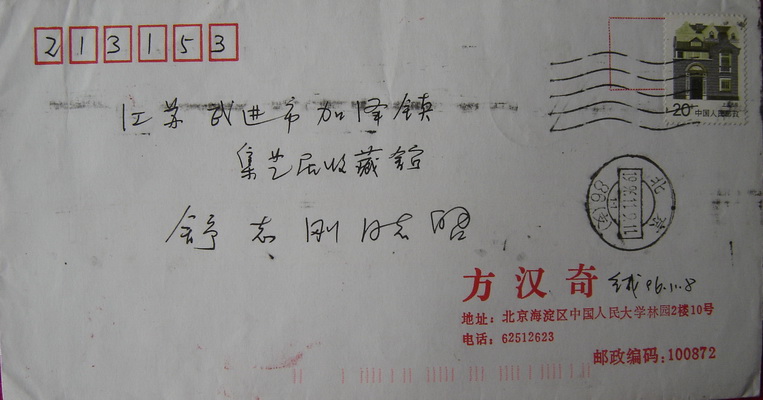 213153
20
中国人民邮政
江苏武进市加泽镇
集艺居收藏馆
舒志刚同志启
北京
方汉奇 96.11.8
地址：北京海淀区中国人民大学林园2楼10号
电话：62512623
邮政编码：100872